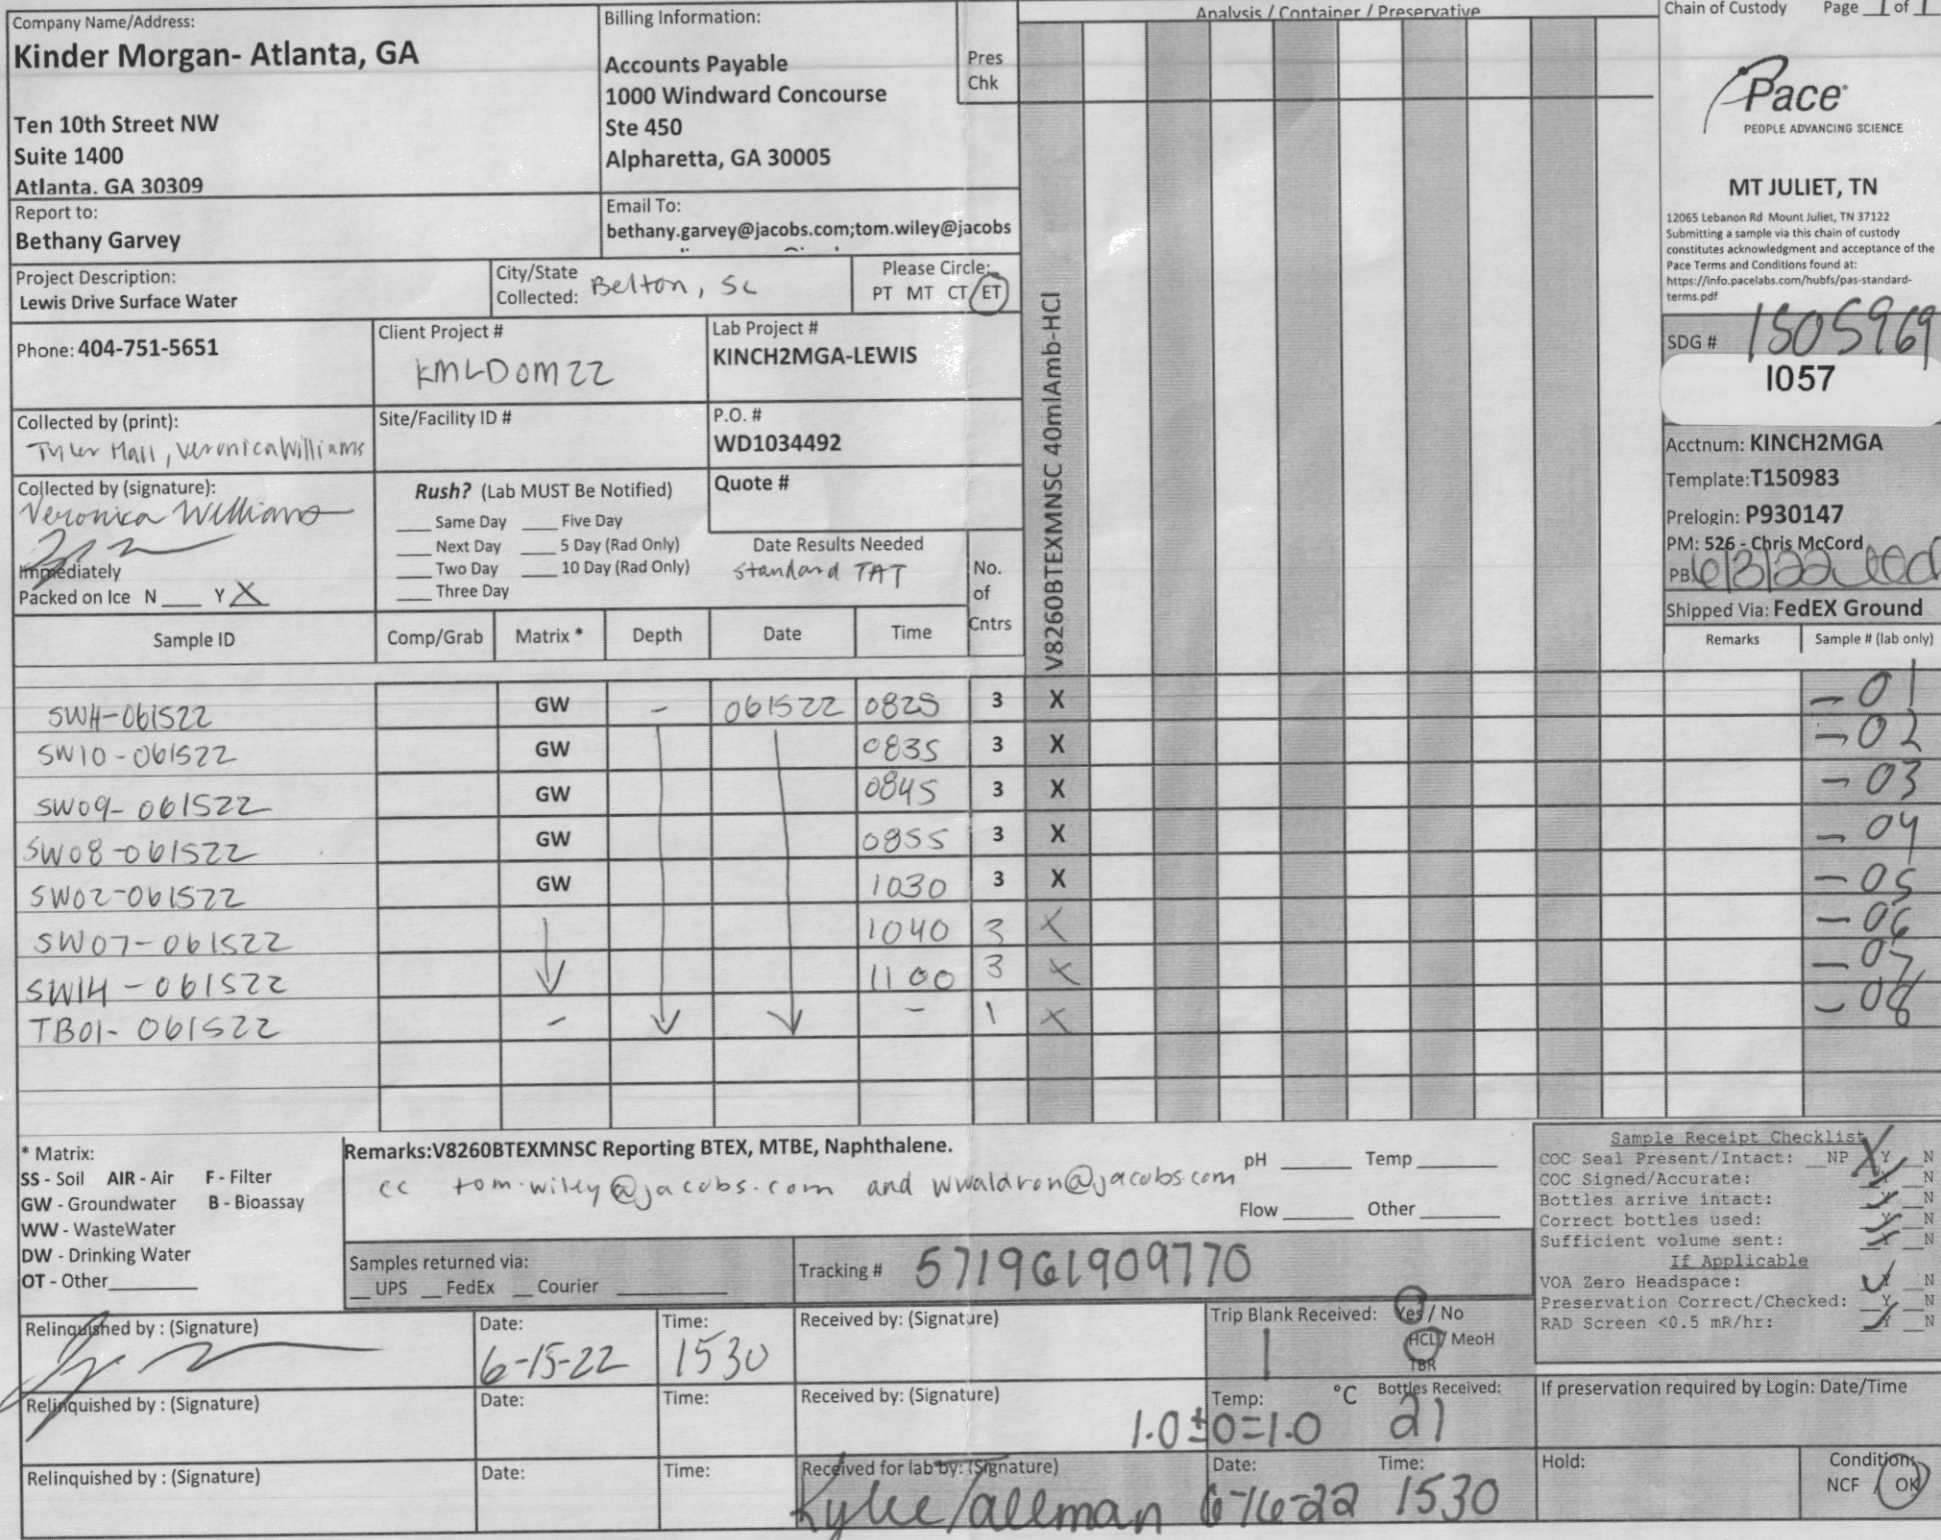 Company Name/Address:
Kinder Morgan- Atlanta, GA
Ten 10th Street NW
Suite 1400
Atlanta. GA 30309
Billing Information:
Accounts Payable
1000 Windward Concourse
Ste 450
Alpharetta, GA 30005
Pres
Chk
Analysis / Container / Preservative
Chain of Custody Page 1 of 1
Pace
PEOPLE ADVANCING SCIENCE
MT JULIET, TN
12065 Lebanon Rd Mount Juliet, TN 37122
Submitting a sample via this chain of custody
constitutes acknowledgment and acceptance of the
Pace Terms and Conditions found at:
https://info.pacelabs.com/hubfs/pas-standard-
terms.pdf
Report to:
Bethany Garvey
Email To:
bethany.garvey@jacobs.com;tom.wiley@jacobs
Project Description:
Lewis Drive Surface Water
City/State
Collected: Belton, SC
Please Circle:
PT MT CT ET
Phone: 404-751-5651
Client Project #
KMLDOM22
Lab Project #
KINCH2MGA-LEWIS
SDG # 1505969
I057
Collected by (print):
Tyler Hall, Veronica Williams
Site/Facility ID #
P.O. #
WD1034492
Acctnum: KINCH2MGA
Template:T150983
Prelogin: P930147
PM: 526 - Chris McCord
PB: 6/3/22
Shipped Via: FedEX Ground
Collected by (signature):
Veronica Williams
Immediately
Packed on Ice N ___ Y X
Rush? (Lab MUST Be Notified)
___ Same Day ___ Five Day
___ Next Day ___ 5 Day (Rad Only)
___ Two Day ___ 10 Day (Rad Only)
___ Three Day
Quote #
Date Results Needed
Standard TAT
No.
of
Cntrs
V8260BTEXMNSC 40mlAmb-HCl
Sample ID Comp/Grab Matrix * Depth Date Time Remarks Sample # (lab only)
SW4-061522 GW - 061522 0825 3 X -01
SW10-061522 GW 0835 3 X -02
SW09-061522 GW 0845 3 X -03
SW08-061522 GW 0855 3 X -04
SW02-061522 GW 1030 3 X -05
SW07-061522 1040 3 X -06
SW14-061522 1100 3 X -07
TB01-061522 - - 1 X -08
* Matrix:
SS - Soil AIR - Air F - Filter
GW - Groundwater B - Bioassay
WW - WasteWater
DW - Drinking Water
OT - Other
Remarks:V8260BTEXMNSC Reporting BTEX, MTBE, Naphthalene.
cc tom.wiley@jacobs.com and wwaldron@jacobs.com
pH ___ Temp ___
Flow ___ Other ___
Samples returned via:
__ UPS __ FedEx __ Courier
Tracking # 571961909770
Sample Receipt Checklist
COC Seal Present/Intact: __NP Y N
COC Signed/Accurate: Y N
Bottles arrive intact: Y N
Correct bottles used: Y N
Sufficient volume sent: Y N
If Applicable
VOA Zero Headspace: Y N
Preservation Correct/Checked: Y N
RAD Screen <0.5 mR/hr: Y N
Relinquished by : (Signature)
Date:
6-15-22
Time:
1530
Received by: (Signature)
Trip Blank Received: Yes / No
1
HCL / MeoH
TBR
Relinquished by : (Signature)
Date:
Time:
Received by: (Signature)
Temp: °C
1.0±0=1.0
Bottles Received:
21
If preservation required by Login: Date/Time
Relinquished by : (Signature)
Date:
Time:
Received for lab by: (Signature)
Kylie Tallman
Date:
6-16-22
Time:
1530
Hold:
Condition:
NCF / OK